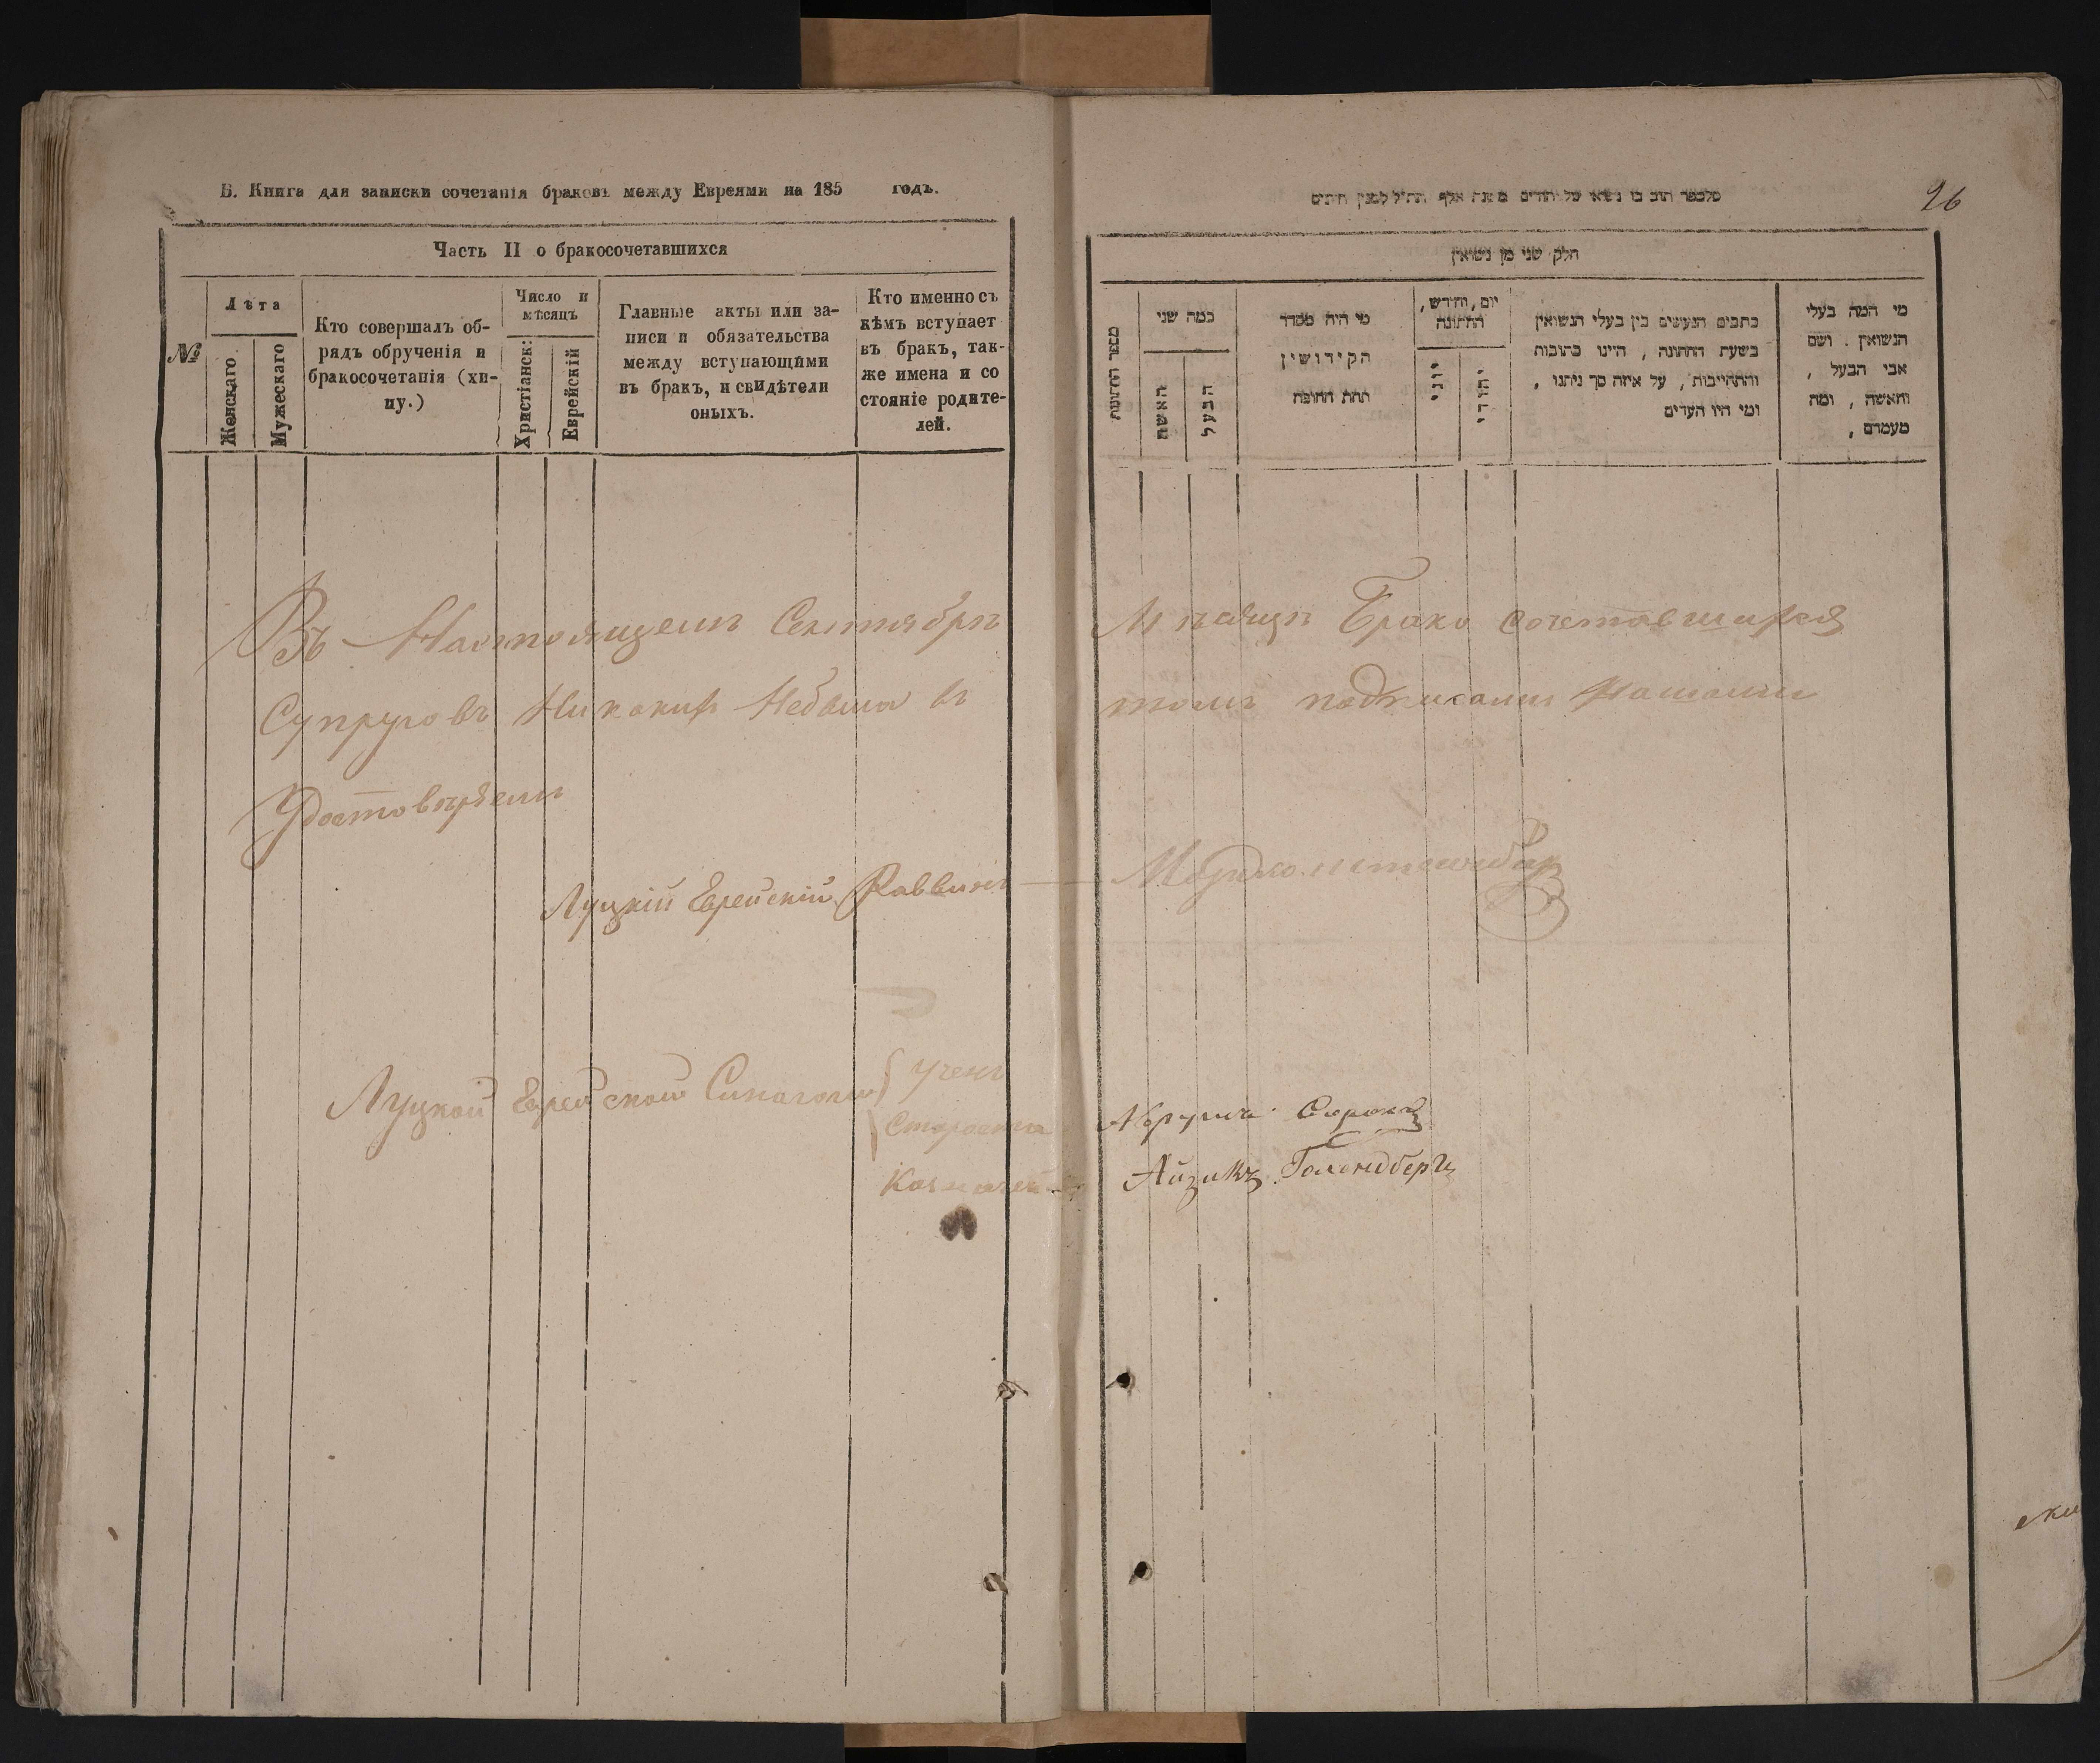 Б. Книга для записки сочетанія браковъ между Евреями на 185 годъ.
Часть II о бракосочетавшихся
№
Лѣта
Женскаго
Мужескаго
Кто совершалъ об-
рядъ обрученія и
бракосочетанія (хи-
пу.)
Число и
мѣсяцъ
Христіанск:
Еврейскій
Главные акты или за-
писи и обязательства
между вступающими
въ бракъ, и свидѣтели
оныхъ.
Кто именно съ
кѣмъ вступает
въ бракъ, так-
же имена и со
стояніе родите-
лей.
Въ Настоящемъ Сентябрѣ
Супруговъ Никакихъ Небыло въ
Удостовѣряемъ
Луцкій Еврейскій Раввинъ
Луцкой Еврейской Синагоги
Ученъ
Староста
Казначей
26
חלק שני מן נשואין
מספר החתונות
כמה שני
האשה
הבעל
מי היה מסדר
הקידושין
תחת החופה
יום, וחודש,
החתונה
יוני
יהודי
כתבים הנעשים בין בעלי הנשואין
בשעת החתונה, היינו כתובות
והתחייבות, על איזה סך ניתנו,
ומי היו העדים
מי המה בעלי
הנשואין. ושם
אבי הבעל,
והאשה, ומה
מעמדם,
Мѣсяцѣ Брако сочетавшихся
томъ подписами Нашими
Абрумъ Сорока
Айзикъ Голендберъ